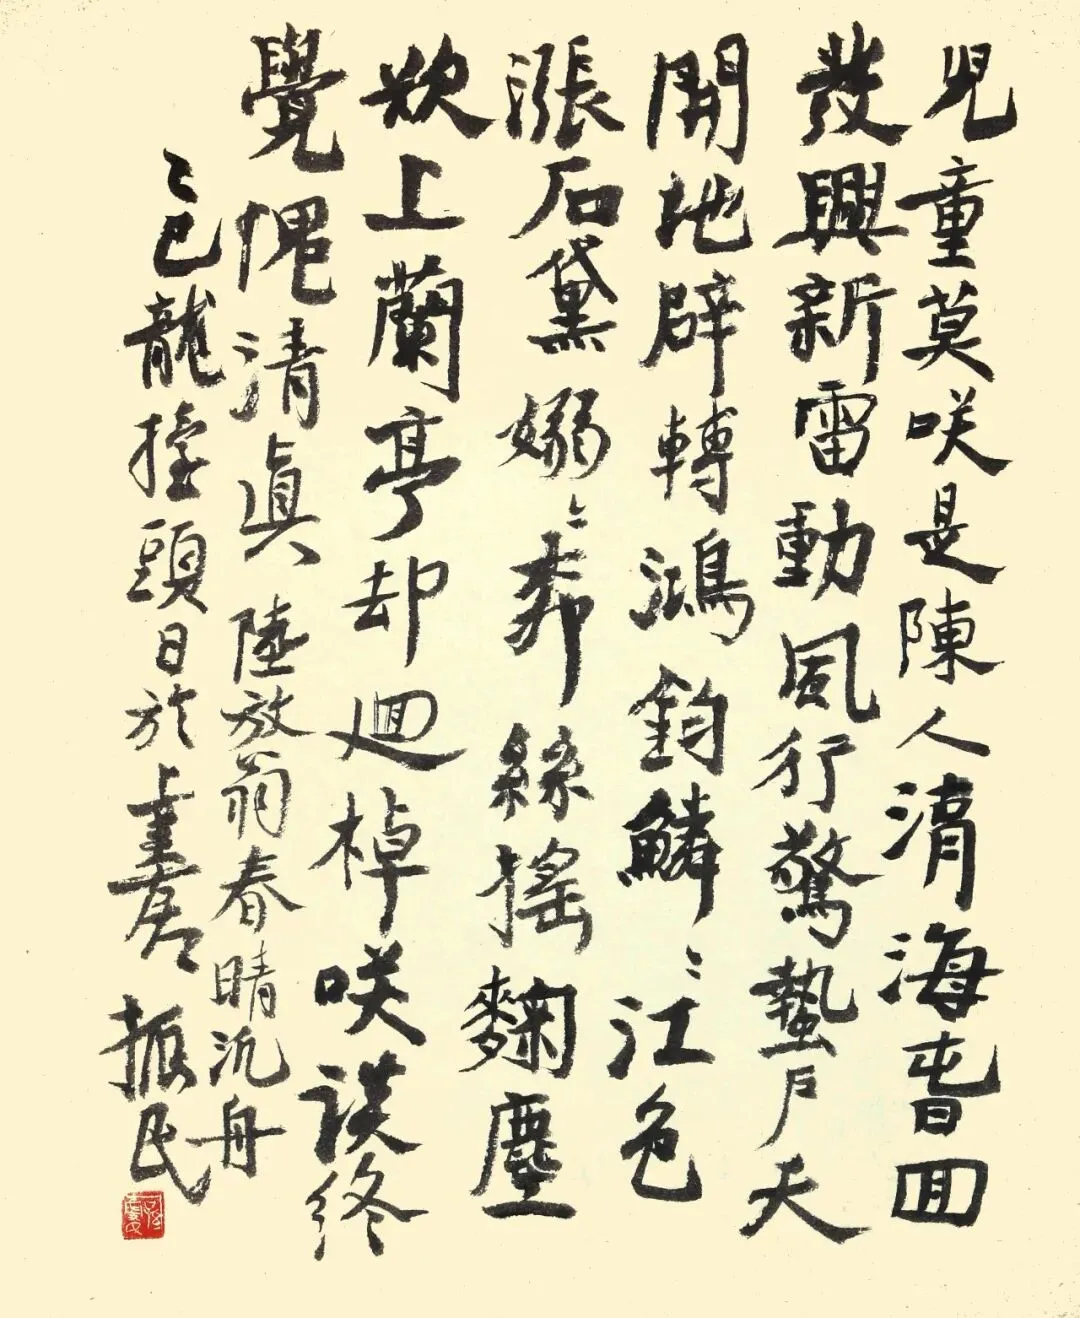 兒童莫咲是陳人湖海旾囬
發興新雷動風行驚蟄戶天
開地辟轉鴻鈞鱗〻江色
漲石黛嫋〻桺絲搖麴塵
欲上蘭亭却迴棹咲談終
覺愧清眞 陸放翁春晴汎舟
乙巳龍擡頭日於上書房 振民